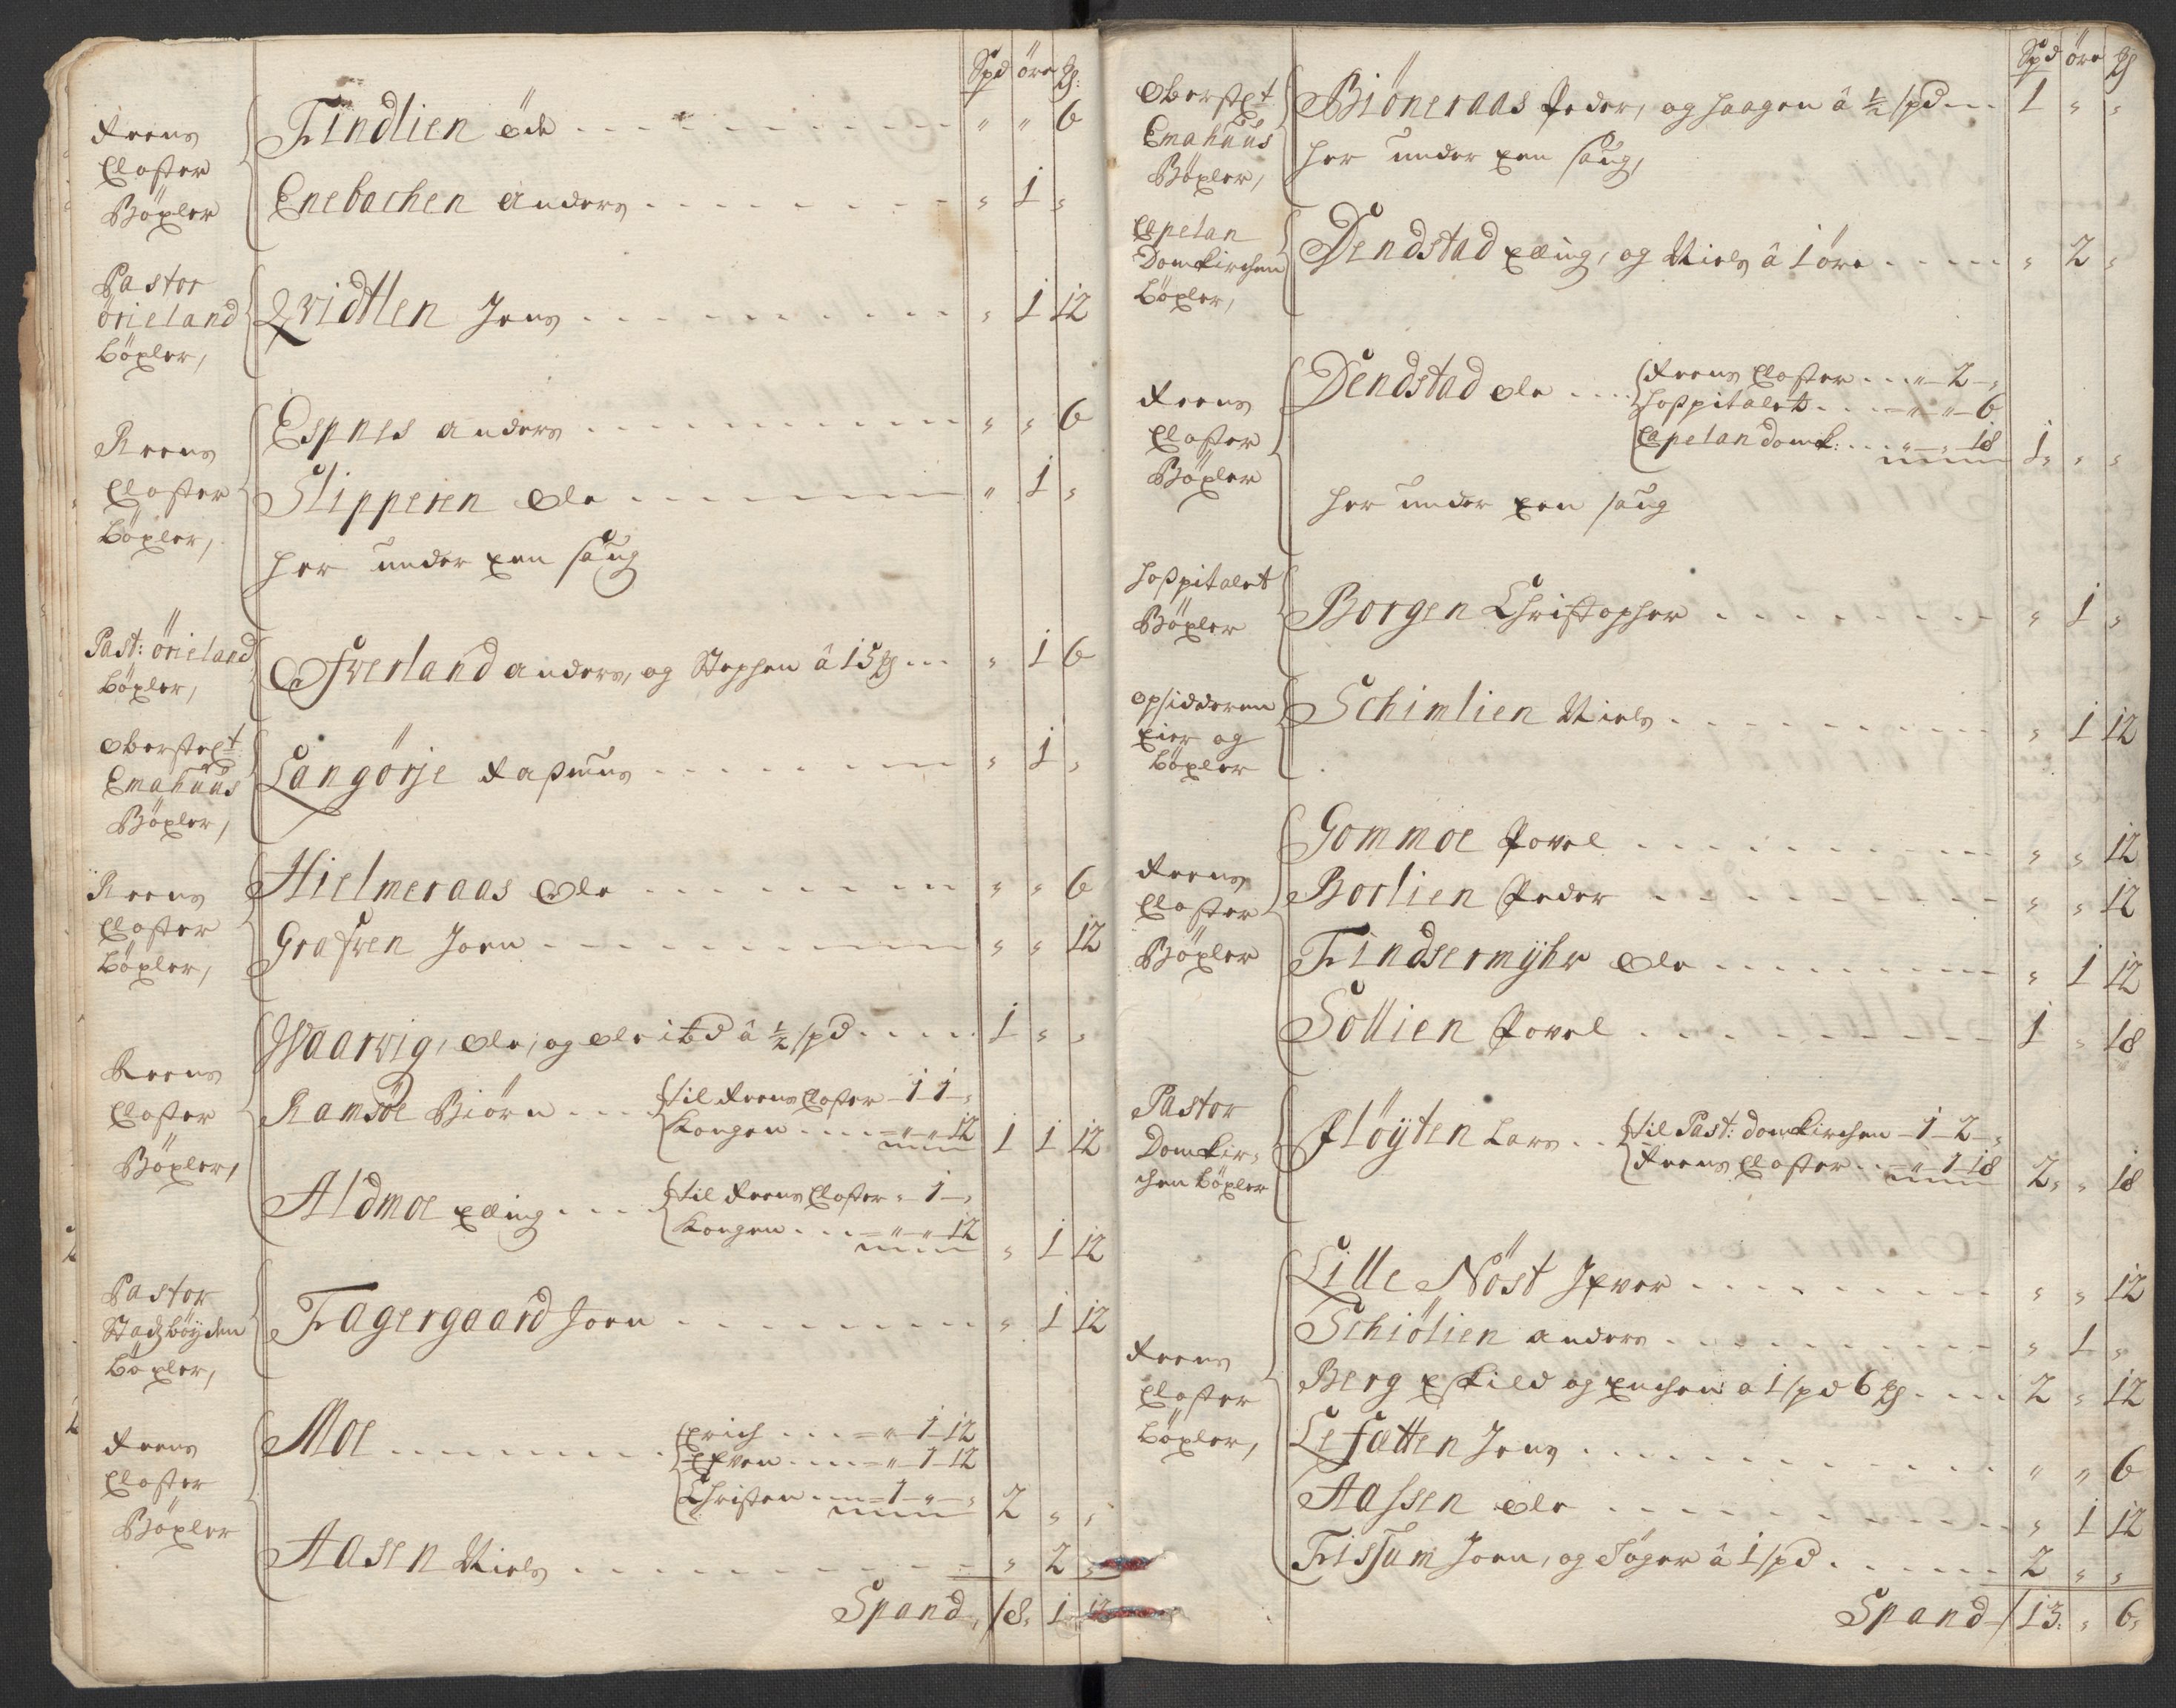 Spd öre ȝ:
Reens
Closter
Böxler
Findlien öde - - - " " 6
Enebachen Anders - - - " 1 "
Pastor
örieland
böxler,
Qvidtlen Jens - - - " 1 12
Reens
Closter
böxler,
Espnes Anders - - - " " 6
Slipperen Ole - - - " 1 "
her under een saug
Past: örieland
böxler,
Ofverland Anders, og Stephen â 15 ȝ - - - " 1 6
Oberstlt
Emahuus
Böxler,
Langörje Rasmus - - - " 1 "
Reens
Closter
böxler,
Hielmeraas Ole - - - " " 6
Grafven Joen - - - " " 12
Reens
Closter
Böxler,
Waarvig, Ole, og Ole ibd â ½ spd - - - 1 " "
Ramsöe Biörn - - - til Reens Closter - 1 1 -"
Kongen - - - " " 12 1 1 12
Aldmoe Elling - - - til Reens Closter " 1 -"
Kongen - - - " " 12 " 1 12
Pastor
Stadzböyden
böxler,
Fagergaard Joen - - - " 1 12
Reens
Closter
Böxler
Moe - - - Erich - - - " 1 - 12
Efven - - - " 1 - 12
Christen - - - 1 - " - " 2 " "
Aasen Niels - - - " 2 "
Spand, / 8. 1 12
Spd öre ȝ
Oberstlt
Emahuus
Böxler,
Biöneraas Peder, og Haagen â ½ spd - - - 1 " "
her under een saug,
Capelan
Domkirchen
böxler,
Dendstad Elling, og Niels â 1 öre - - - " 2 "
Reens
Closter
Böxler
Dendstad Ole - - - Reens Closter - - - " 2 - "
Hospitalet - - - " " 6
Capelan domk: - - - " " 18 1 " "
her under een saug
Hospitalet
Böxler
Borgen Christopher - - - " 1 "
Opsidderen
Eier og
böxler
Schimlien Niels - - - " 1 12
Reens
Closter
Böxler
Gommoe Povel - - - " " 12
Borlien Peder - - - " " 12
Findsermyhr Ole - - - " 1 12
Sollien Povel - - - 1 " 18
Pastor
Domkir-
chen böxler
Flöyten Lars - - til Past: domkirchen - 1 - 2 - "
Reens Closter - - - " 1 18 2 " 18
Reens
Closter
böxler,
Lille Nöst Jfver - - - " " 12
Schiölien Anders - - - " 1 "
Berg Eskild og Enchen a 1 spd 6 ȝ - - - 2 " 12
Lefætten Jens - - - " " 6
Aassen Ole - - - " 1 12
Fissum Joen, og Töger â 1 spd - - - 2 " "
Spand / 13: " 6